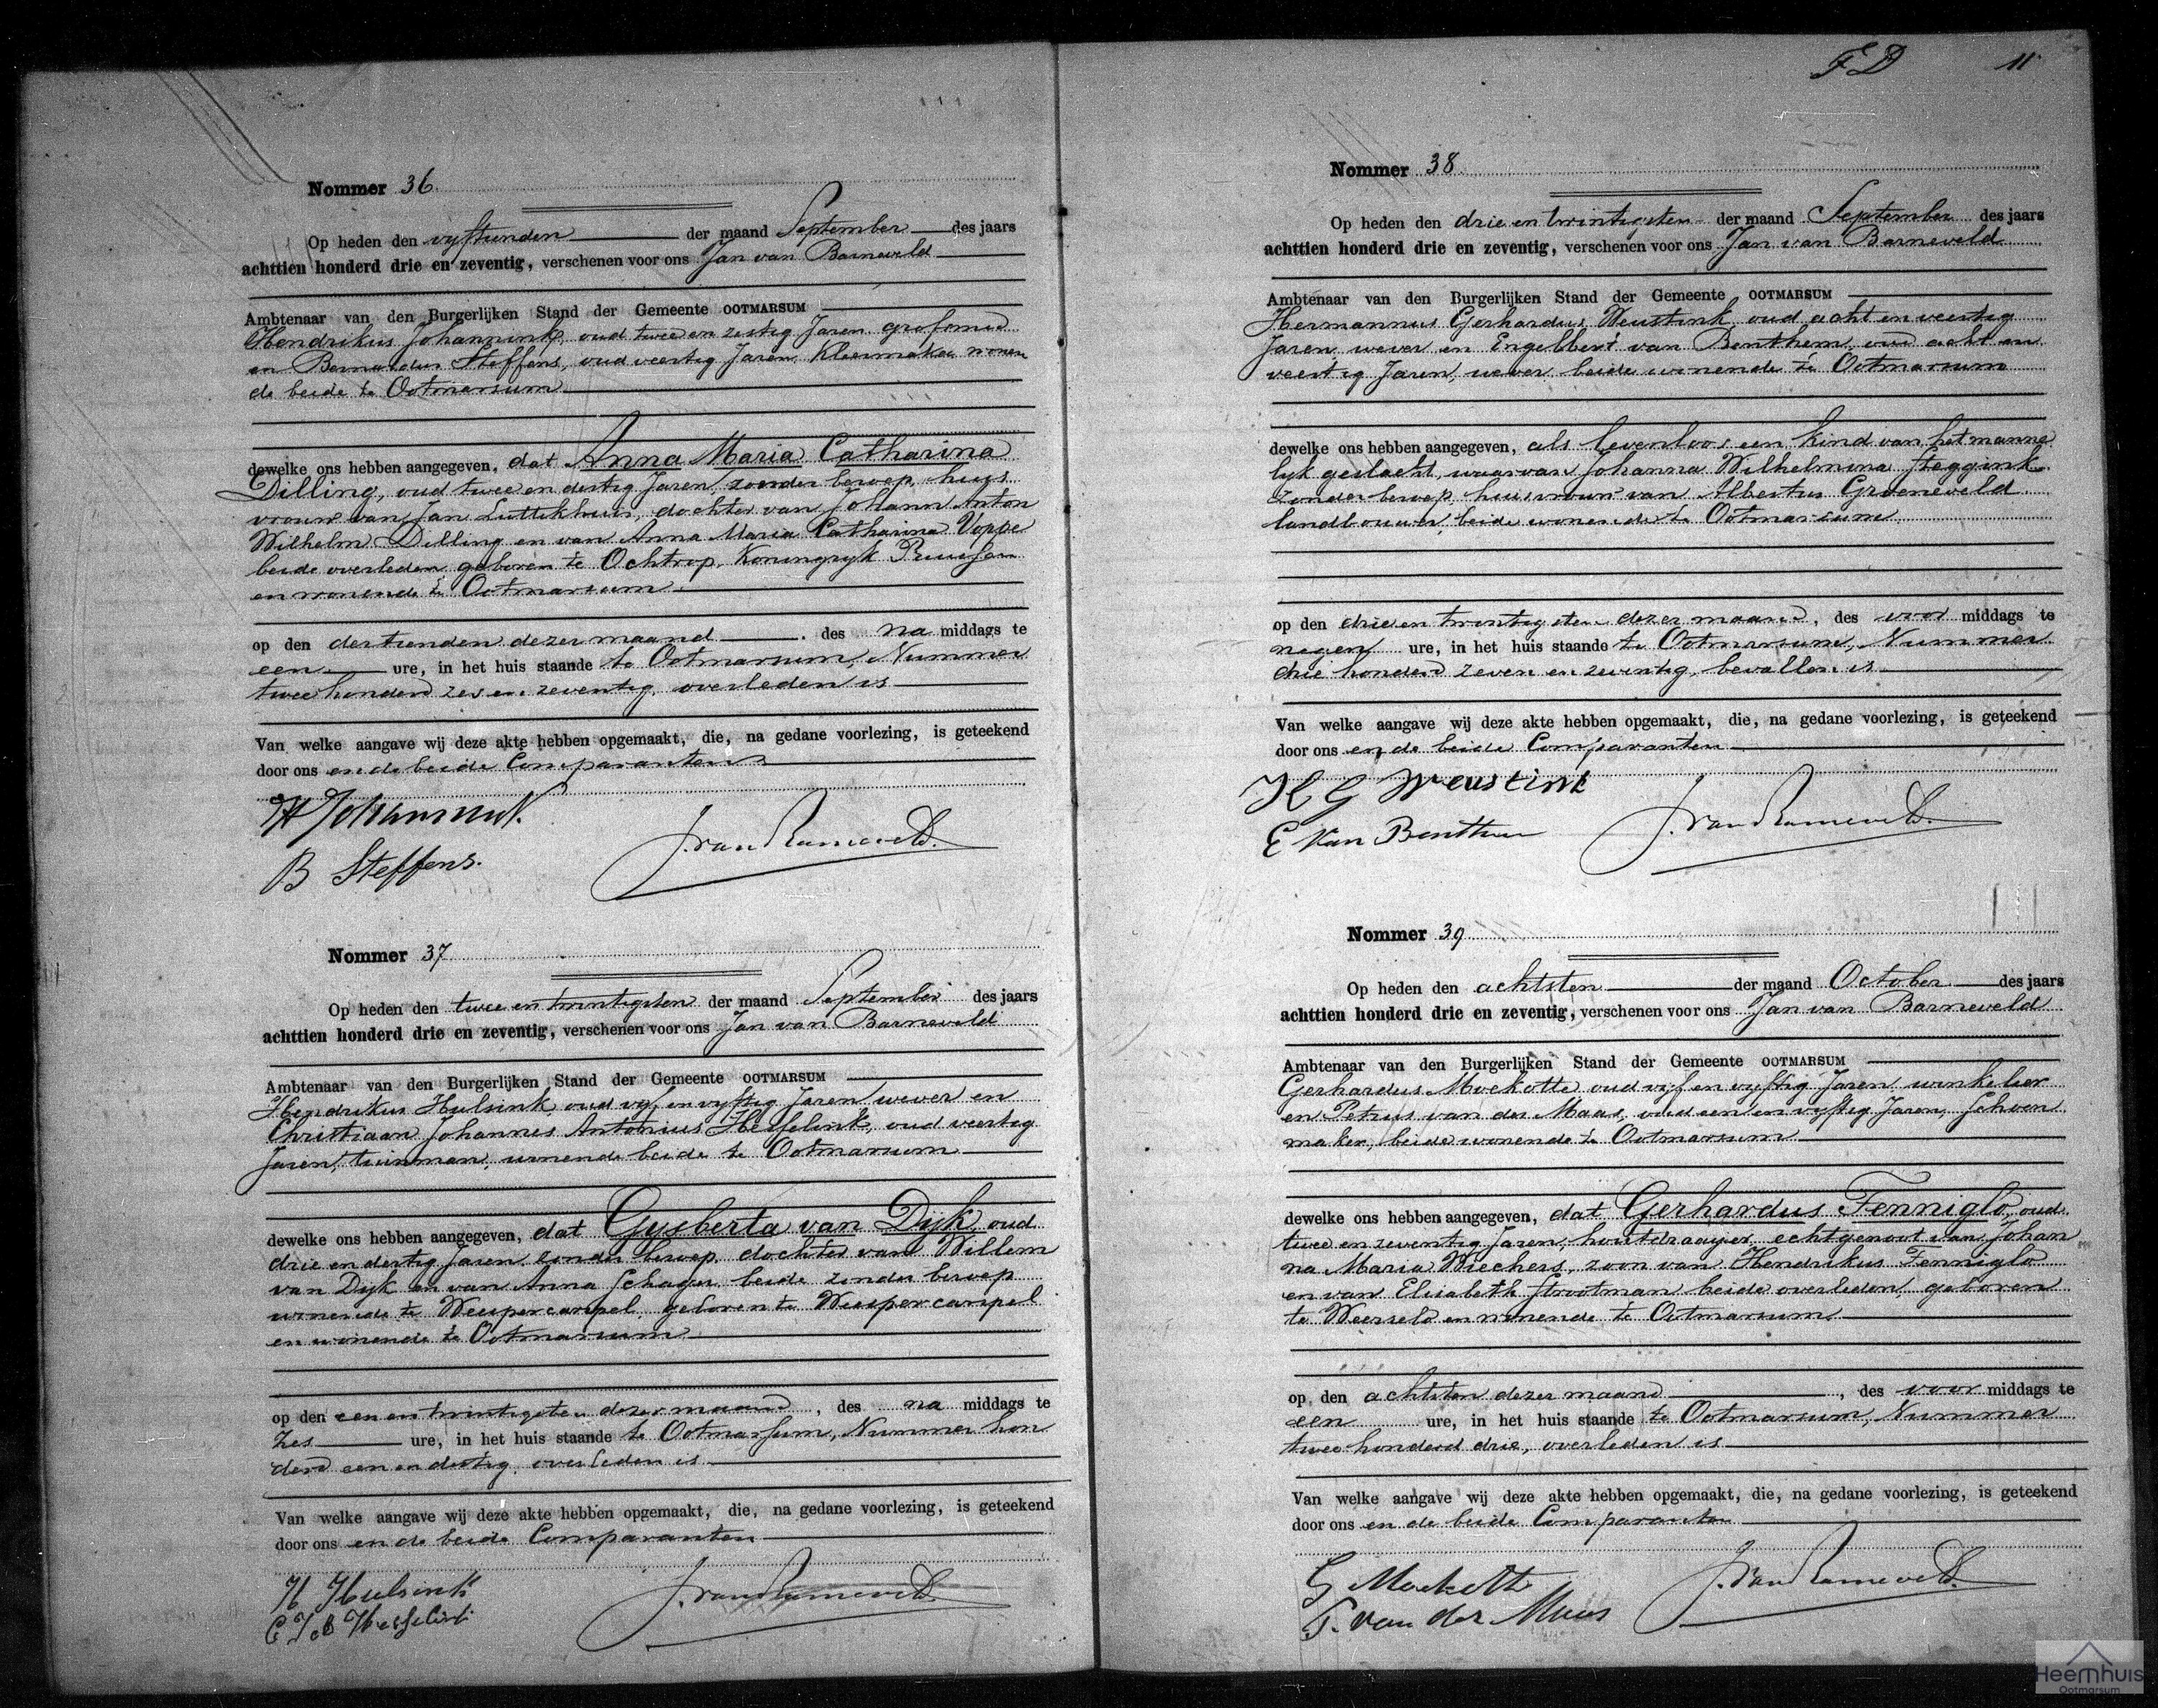 Nommer 36.
Op heden den vyftienden der maand September des jaars
achttien honderd drie en zeventig, verschenen voor ons Jan van Barneveld
Ambtenaar van den Burgerlijken Stand der Gemeente OOTMARSUM
Hendrikus Johannink, oud twee en zestig Jaren grofsmid
en Bernardus Steffens, oud veertig Jaren, Kleermaker wonen
de beide te Ootmarsum
dewelke ons hebben aangegeven, dat Anna Maria Catharina
Dilling, oud twee en dertig Jaren, zonder beroep, huis
vrouw van Jan Luttikhuis, dochter van Johann Anton
Wilhelm Dilling en van Anna Maria Catharina
beide overleden geboren te Ochtrop, Koningryk Pruissen
en wonende te Ootmarsum
op den dertienden dezer maand, des na middags te
een ure, in het huis staande te Ootmarsum, Nummer
twee honderd zes en zeventig, overleden is
Van welke aangave wij deze akte hebben opgemaakt, die, na gedane voorlezing, is geteekend
door ons en de beide Comparanten
H Johannink.
B Steffens.
J. van Barneveld.
Nommer 37
Op heden den twee en twintigsten der maand September des jaars
achttien honderd drie en zeventig, verschenen voor ons Jan van Barneveld
Ambtenaar van den Burgerlijken Stand der Gemeente OOTMARSUM
Hendrikus Hulsink, oud vyf en vyftig Jaren wever en
Christiaan Johannes Antonius Hesselink, oud veertig
Jaren, tuinman, wonende beide te Ootmarsum
dewelke ons hebben aangegeven, dat Gysberta van Dijk, oud
drie en dertig Jaren zonder beroep, dochter van Willem
van Dyk en van Anna Schager, beide zonder beroep
wonende te Weespercarspel, geboren te Weespercarspel
en wonende te Ootmarsum
op den een en twintigsten dezer maand, des na middags te
zes ure, in het huis staande te Ootmarsum, Nummer hon
derd een en dertig, overleden is
Van welke aangave wij deze akte hebben opgemaakt, die, na gedane voorlezing, is geteekend
door ons en de beide Comparanten
H Hulsink
C J A Hesselink
J. van Barneveld.
FD 11
Nommer 38.
Op heden den drie en twintigsten der maand September des jaars
achttien honderd drie en zeventig, verschenen voor ons Jan van Barneveld
Ambtenaar van den Burgerlijken Stand der Gemeente OOTMARSUM
Hermannus Gerhardus Weustink, oud acht en veertig
Jaren wever en Engelbert van Benthem, oud acht en
veertig Jaren, wever beide wonende te Ootmarsum
dewelke ons hebben aangegeven, als levenloos een kind van het manne
lyk geslacht, waarvan Johanna Wilhelmina Steggink
zonder beroep huisvrouw van Albertus Groeneveld
landbouwer, beide wonende te Ootmarsum
op den drie en twintigsten dezer maand, des voor middags te
negen ure, in het huis staande te Ootmarsum, Nummer
drie honderd zeven en zeventig, bevallen is
Van welke aangave wij deze akte hebben opgemaakt, die, na gedane voorlezing, is geteekend
door ons en de beide Comparanten
H G Weustink
E van Benthem
J. van Barneveld.
Nommer 39
Op heden den achtsten der maand October des jaars
achttien honderd drie en zeventig, verschenen voor ons Jan van Barneveld
Ambtenaar van den Burgerlijken Stand der Gemeente OOTMARSUM
Gerhardus Mockotte oud vyf en vyftig Jaren winkelier
en Petrus van der Maas, oud een en vyftig Jaren, Schoen
maker, beide wonende te Ootmarsum
dewelke ons hebben aangegeven, dat Gerhardus Fenniglo, oud
twee en zeventig Jaren, houtdraayer, echtgenoot van Johan
na Maria Wiechers, zoon van Hendrikus Fenniglo
en van Elisabeth Strootman beide overleden, geboren
te Weerselo en wonende te Ootmarsum
op den achtsten dezer maand, des voor middags te
een ure, in het huis staande te Ootmarsum, Nummer
twee honderd drie, overleden is
Van welke aangave wij deze akte hebben opgemaakt, die, na gedane voorlezing, is geteekend
door ons en de beide Comparanten
G Mockotte
P. van der Maas
J. van Barneveld.
Heemhuis
Ootmarsum